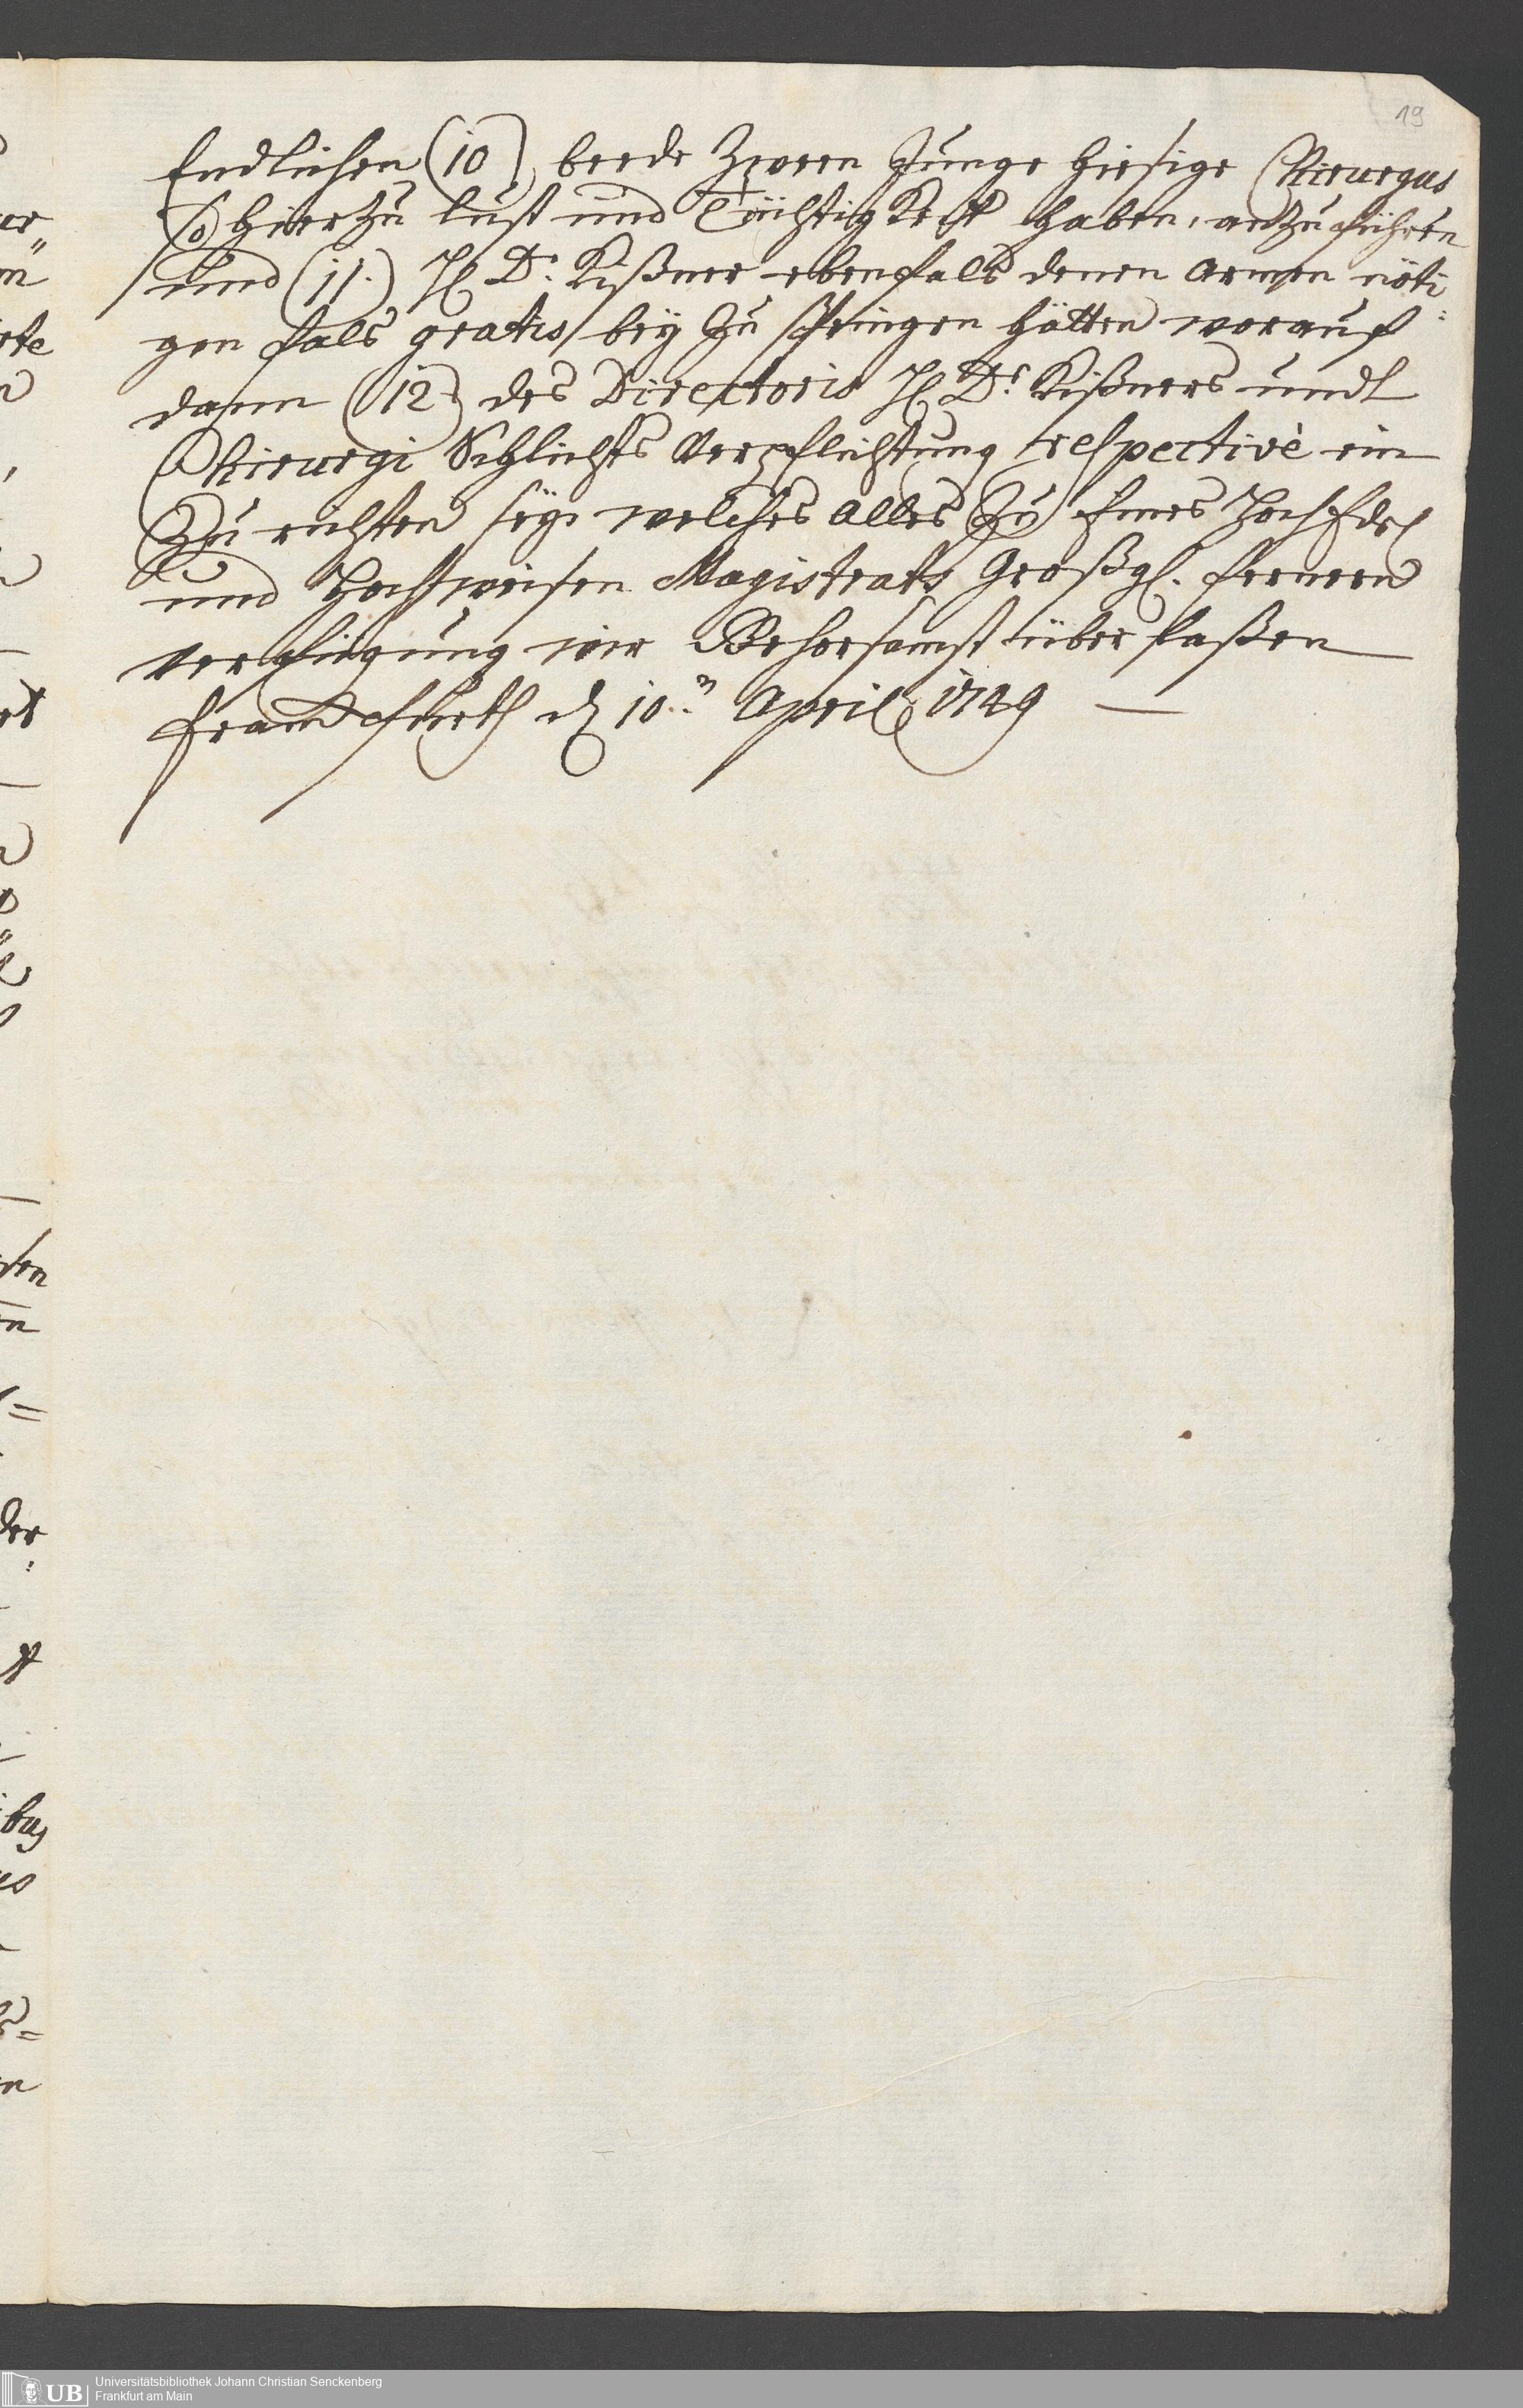 19
Endlichen (10) beede Zween Junge hiesige Chirurgus
so hierzu lust und Tüchtigkeit haben, anzuführen
und (11.) H. Dr. Kißner ebenfals denen armen nöti:
gen fals gratis bey zu springen hätten worauf
dann (12) des Directoris H. Dr. Kißners undt
Chirurgi Schlichts Verpflichtung respectivè ein
Zu richten seye welches alles Zu Eines HochEdel
und Hochweisen Magistrats Großgl. fernern
verfügung wir Gehorsamst überlaßen
Franckfurth d 10n April 1749 —
Universitätsbibliothek Johann Christian Senckenberg
UB
Frankfurt am Main